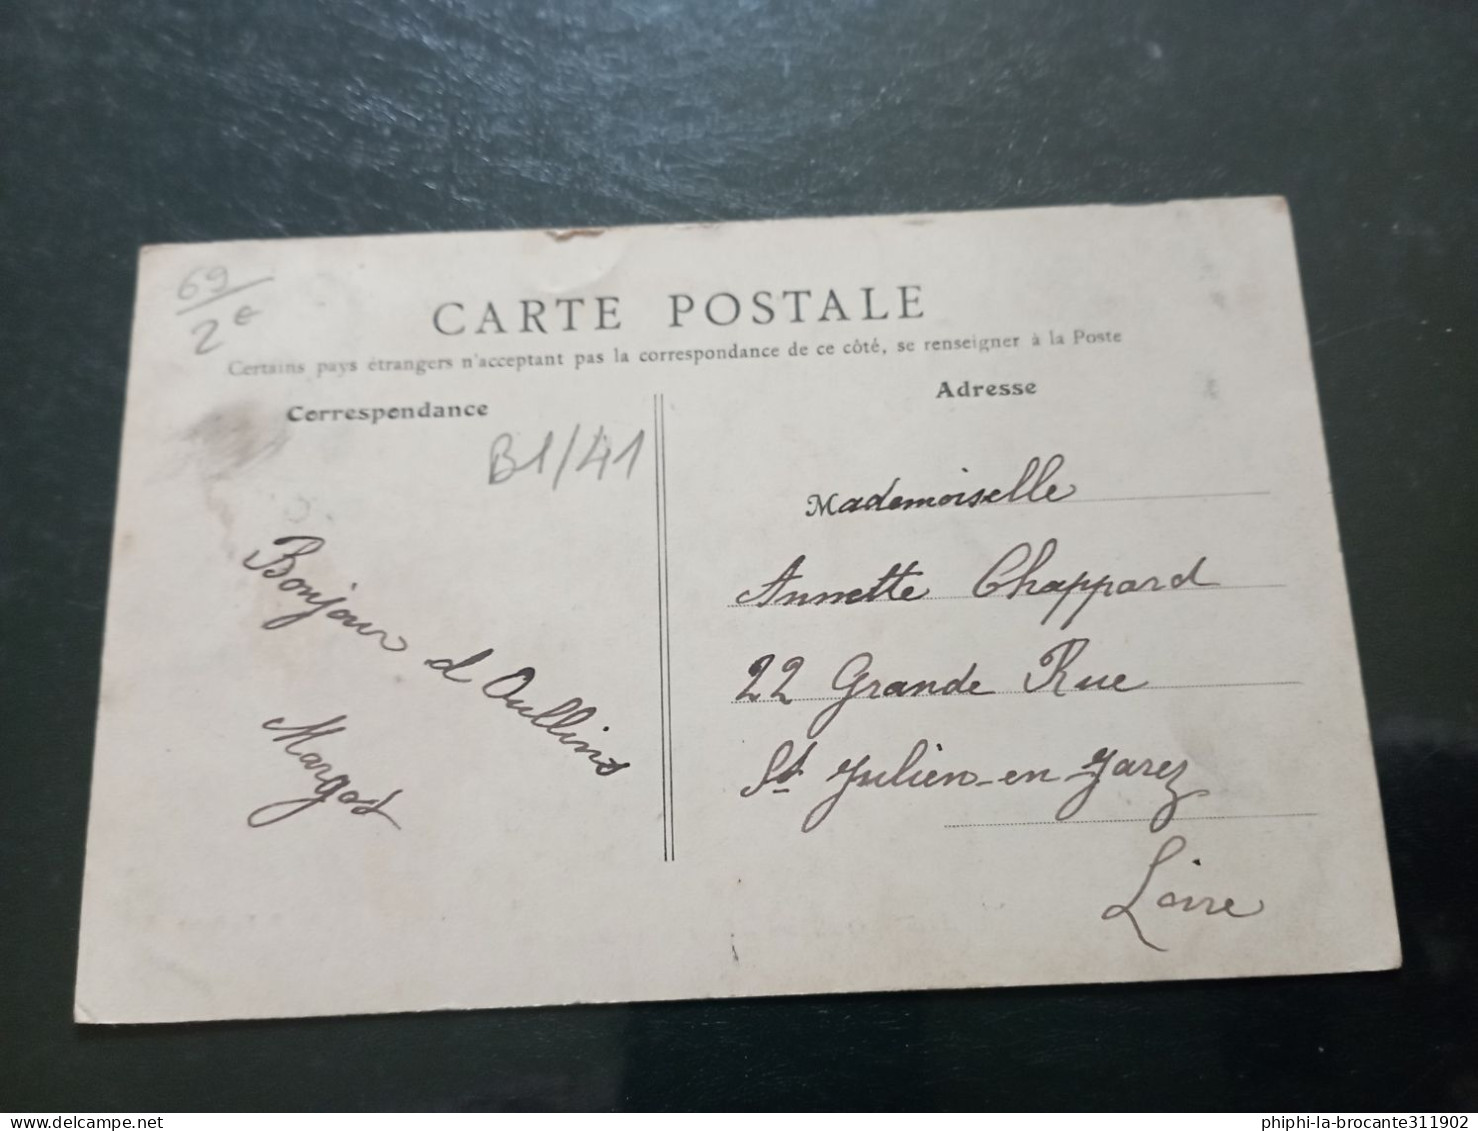 69
2€
CARTE POSTALE
Certains pays étrangers n'acceptant pas la correspondance de ce côté, se renseigner à la Poste
Correspondance
B1/41
Bonjour d Oullins
Margot
Adresse
Mademoiselle
Annette Chappard
22 Grande Rue
St Julien-en-Jarez
Loire
delcampe.net
phiphi-la-brocante311902